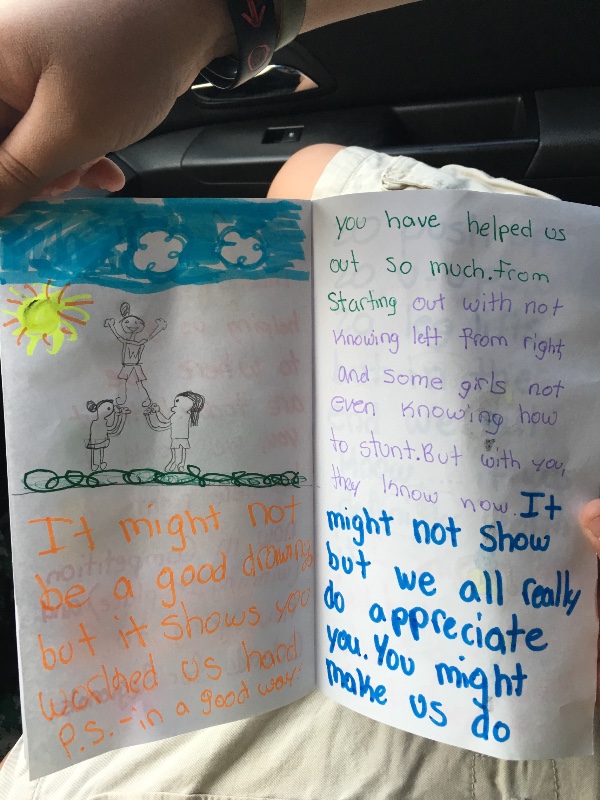 W
It might not
be a good drawing
but it shows you
worked us hard
P.S.-in a good way!
you have helped us
out so much.from
Starting out with not
knowing left from right
and some girls not
even knowing how
to stunt.But with you,
they know now. It
might not show
but we all really
do appreciate
you. You might
make us do